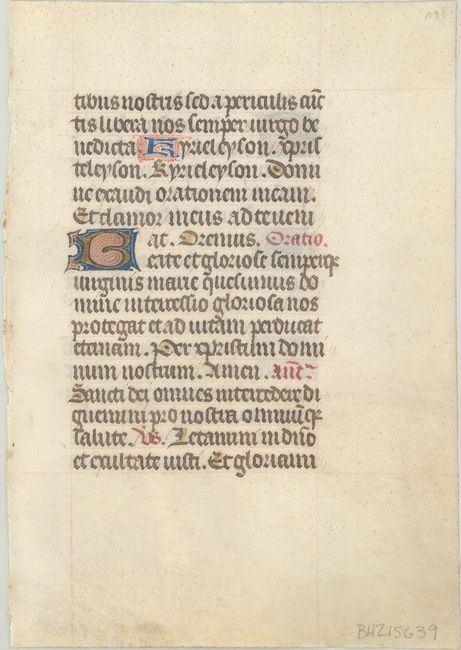 111
tibus nostris sed a periculis cūc
tis libera nos semper uirgo be
nedicta. Kyrieleyson. Xpris
teleyson. Kyrieleyson. Domi
ne exaudi orationem meam.
Et clamor meus ad te ueni
at. Oremus. Oratio.
Beate et gloriose semperqꝫ
uirginis marie quesumus do
mine intercessio gloriosa nos
protegat et ad uitam perducat
eternam. Per xpristum domi
num nostrum. Amen. Añt
Sancti dei omnes intercedere di
gnemini pro nostra omniūqꝫ
salute. Vs. Letamini in dño
et exultate iusti. Et gloriami
BHZ15639